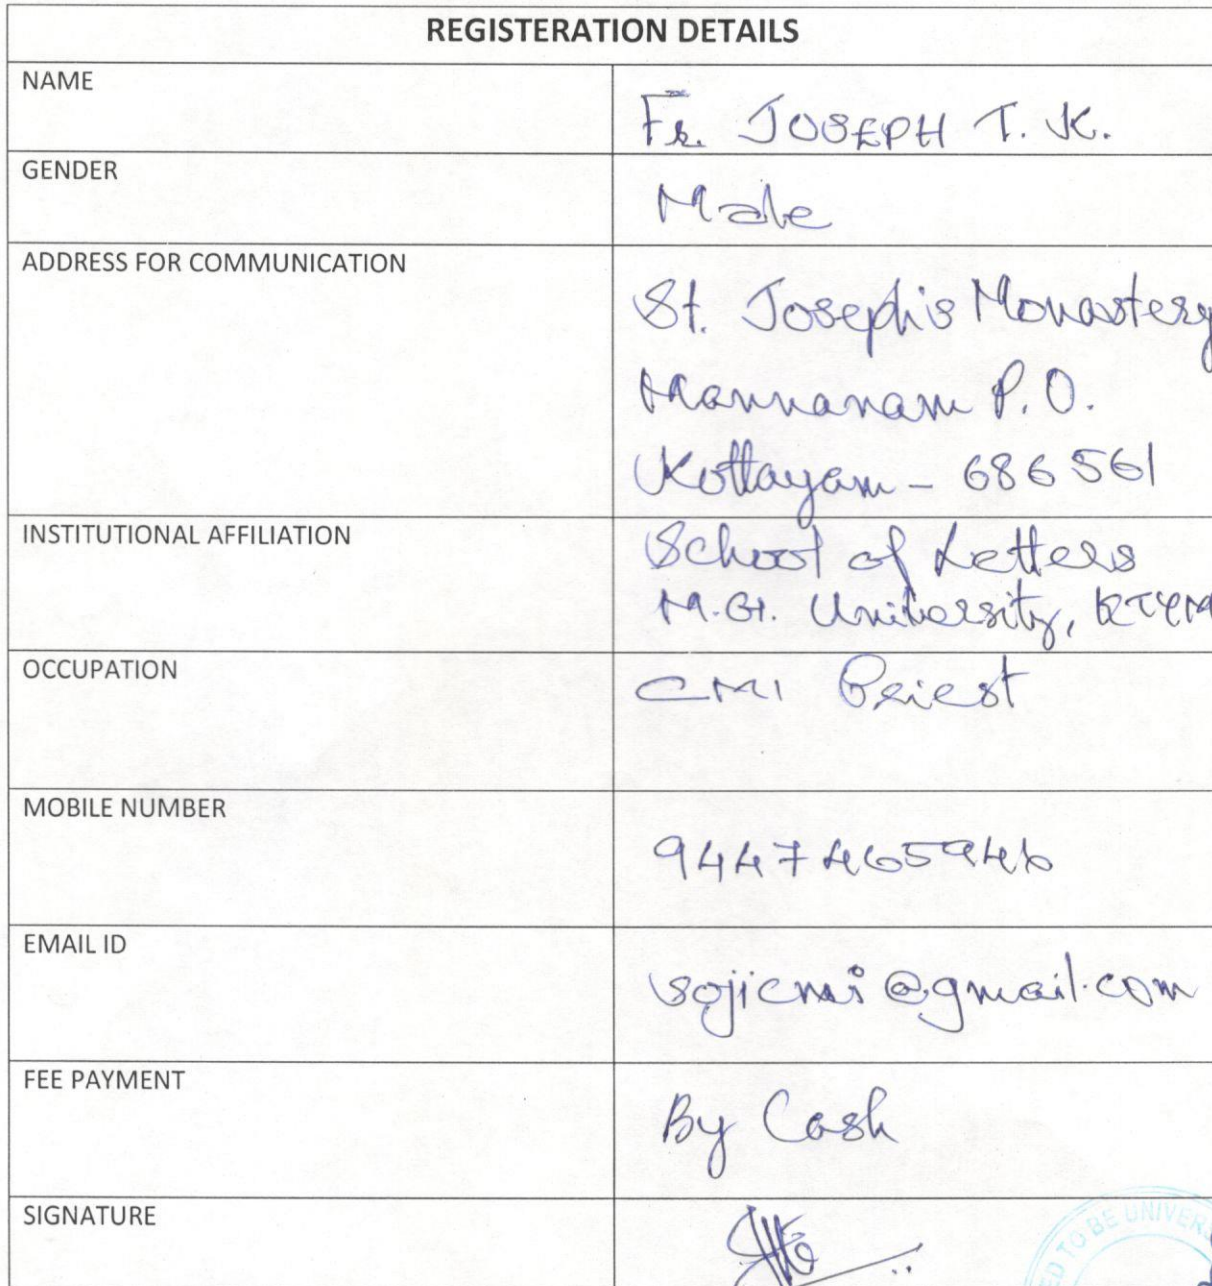 REGISTERATION DETAILS
NAME
Fr. JOSEPH T. K.
GENDER
Male
ADDRESS FOR COMMUNICATION
St. Joseph's Monastery
Mannanam P.O.
Kottayam - 686 561
INSTITUTIONAL AFFILIATION
School of Letters
M.G. University, KTYM
OCCUPATION
CMI Priest
MOBILE NUMBER
9447465946
EMAIL ID
sojicmi@gmail.com
FEE PAYMENT
By Cash
SIGNATURE
TO BE